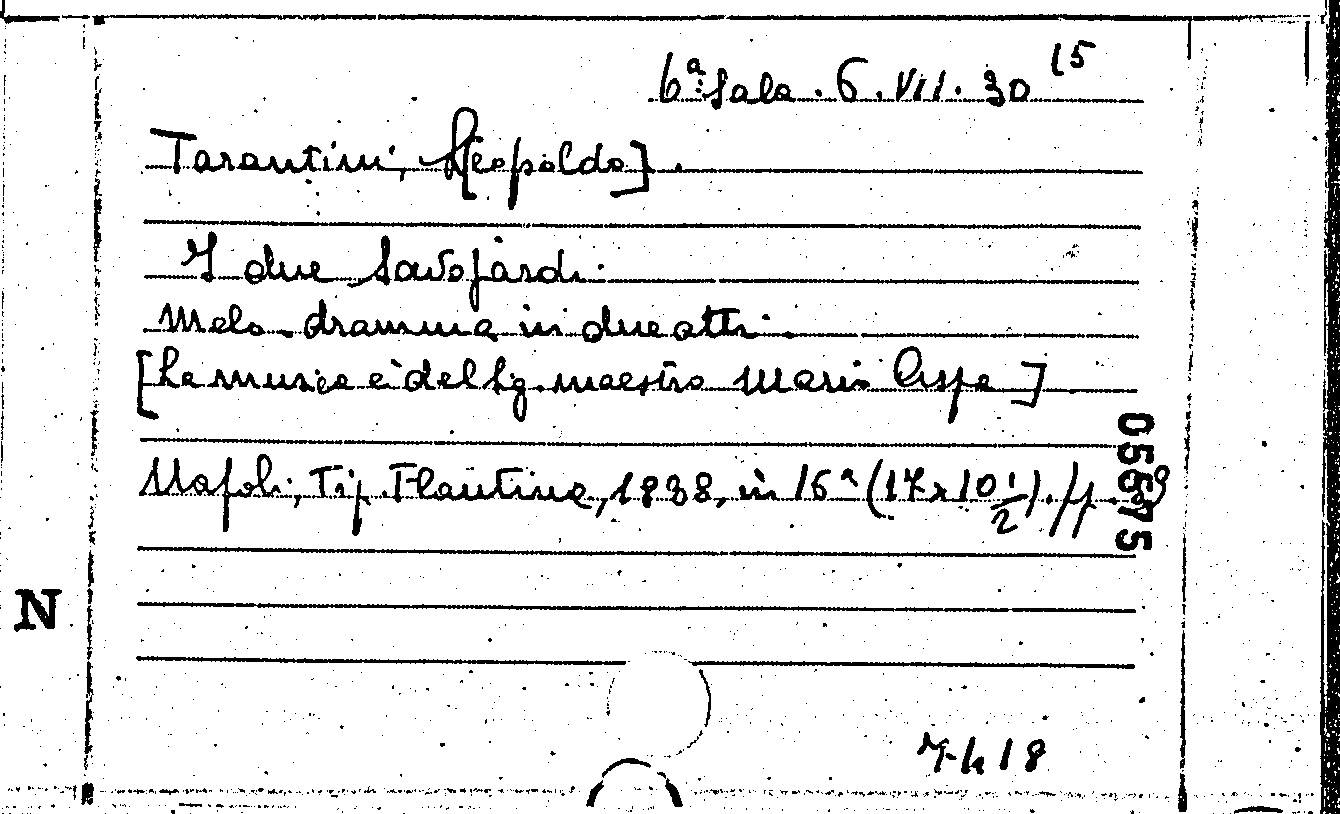 6ª Sala. 6. VII. 30 (5
Tarantini, L[eopoldo].
I due Savojardi.
Melo-dramma in due atti.
[La musica è del Sig. maestro Mario Aspa]
Napoli, Tip. Flautina, 1838, in 16° (17 x 10 1/2). pp.
N